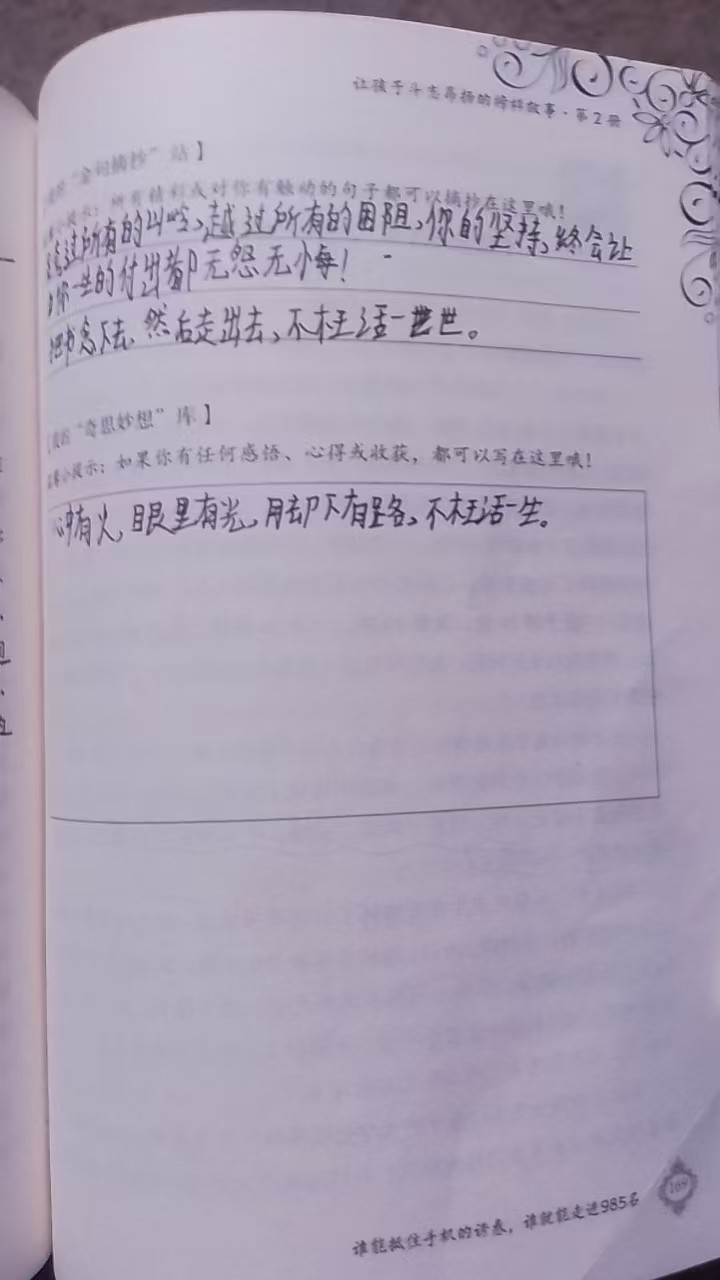 让孩子斗志昂扬的榜样故事·第2册
“金句摘抄”站】
小提示：所有精彩或对你有触动的句子都可以摘抄在这里哦！
过所有的山岭、越过所有的困阻、你的坚持、终会让
你一生的付出都无怨无悔！
把书念下去、然后走出去、不枉活一世。
“奇思妙想”库】
小提示：如果你有任何感悟、心得或收获，都可以写在这里哦！
心中有火，眼里有光，脚下有路、不枉活一生。
谁能抵住手机的诱惑，谁就能走进985名
169